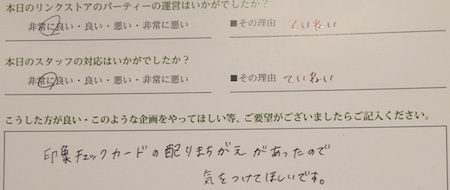 本日のリンクストアのパーティーの運営はいかがでしたか？
非常に良い・良い・悪い・非常に悪い ■その理由 ていねい
本日のスタッフの対応はいかがでしたか？
非常に良い・良い・悪い・非常に悪い ■その理由 ていねい
こうした方が良い・このような企画をやってほしい等、ご要望がございましたらご記入ください。
印象チェックカードの配りまちがえがあったので
気をつけてほしいです。